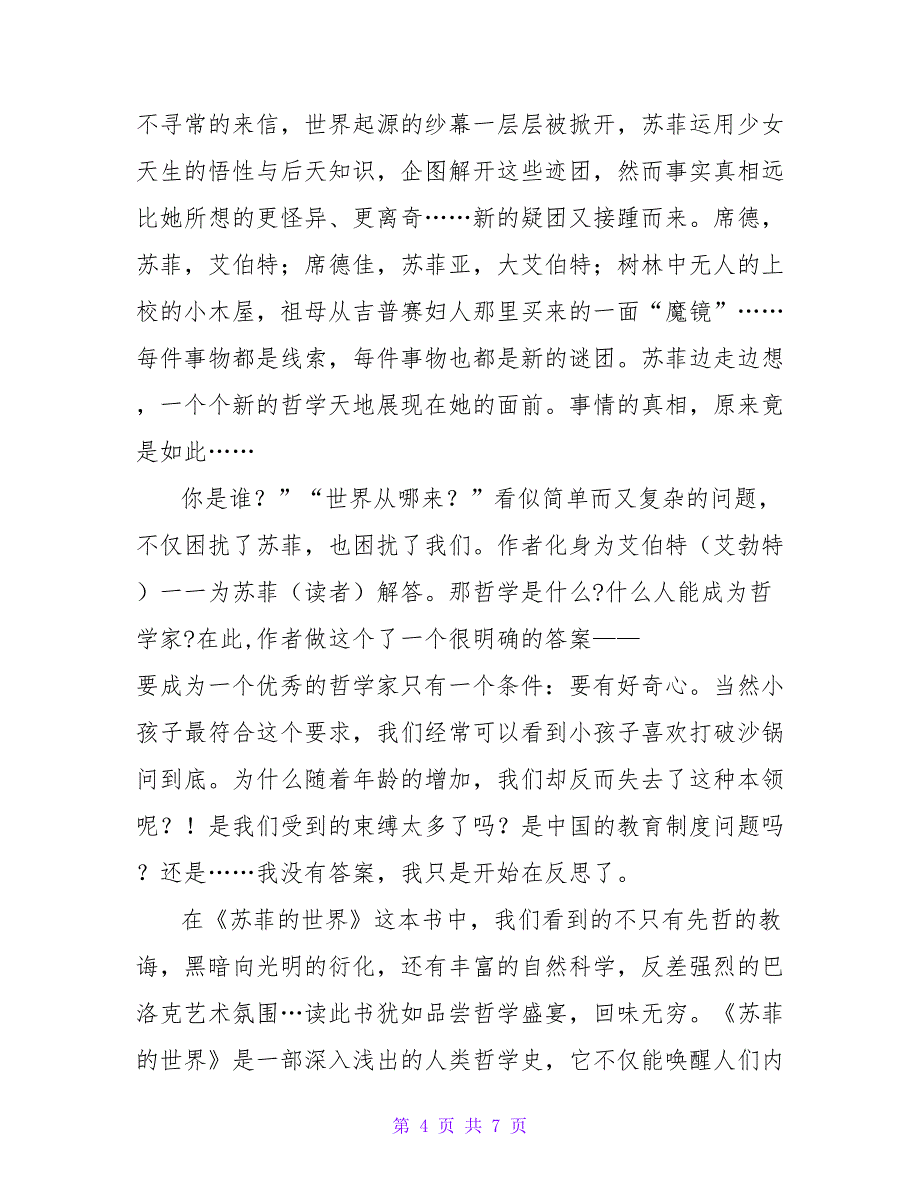 不寻常的来信，世界起源的纱幕一层层被掀开，苏菲运用少女
天生的悟性与后天知识，企图解开这些迹团，然而事实真相远
比她所想的更怪异、更离奇……新的疑团又接踵而来。席德，
苏菲，艾伯特；席德佳，苏菲亚，大艾伯特；树林中无人的上
校的小木屋，祖母从吉普赛妇人那里买来的一面“魔镜”……
每件事物都是线索，每件事物也都是新的谜团。苏菲边走边想
，一个个新的哲学天地展现在她的面前。事情的真相，原来竟
是如此……
你是谁？”“世界从哪来？”看似简单而又复杂的问题，
不仅困扰了苏菲，也困扰了我们。作者化身为艾伯特（艾勃特
）一一为苏菲（读者）解答。那哲学是什么?什么人能成为哲
学家?在此,作者做这个了一个很明确的答案——
要成为一个优秀的哲学家只有一个条件：要有好奇心。当然小
孩子最符合这个要求，我们经常可以看到小孩子喜欢打破沙锅
问到底。为什么随着年龄的增加，我们却反而失去了这种本领
呢？！是我们受到的束缚太多了吗？是中国的教育制度问题吗
？还是……我没有答案，我只是开始在反思了。
在《苏菲的世界》这本书中，我们看到的不只有先哲的教
诲，黑暗向光明的衍化，还有丰富的自然科学，反差强烈的巴
洛克艺术氛围…读此书犹如品尝哲学盛宴，回味无穷。《苏菲
的世界》是一部深入浅出的人类哲学史，它不仅能唤醒人们内
第 4 页 共 7 页